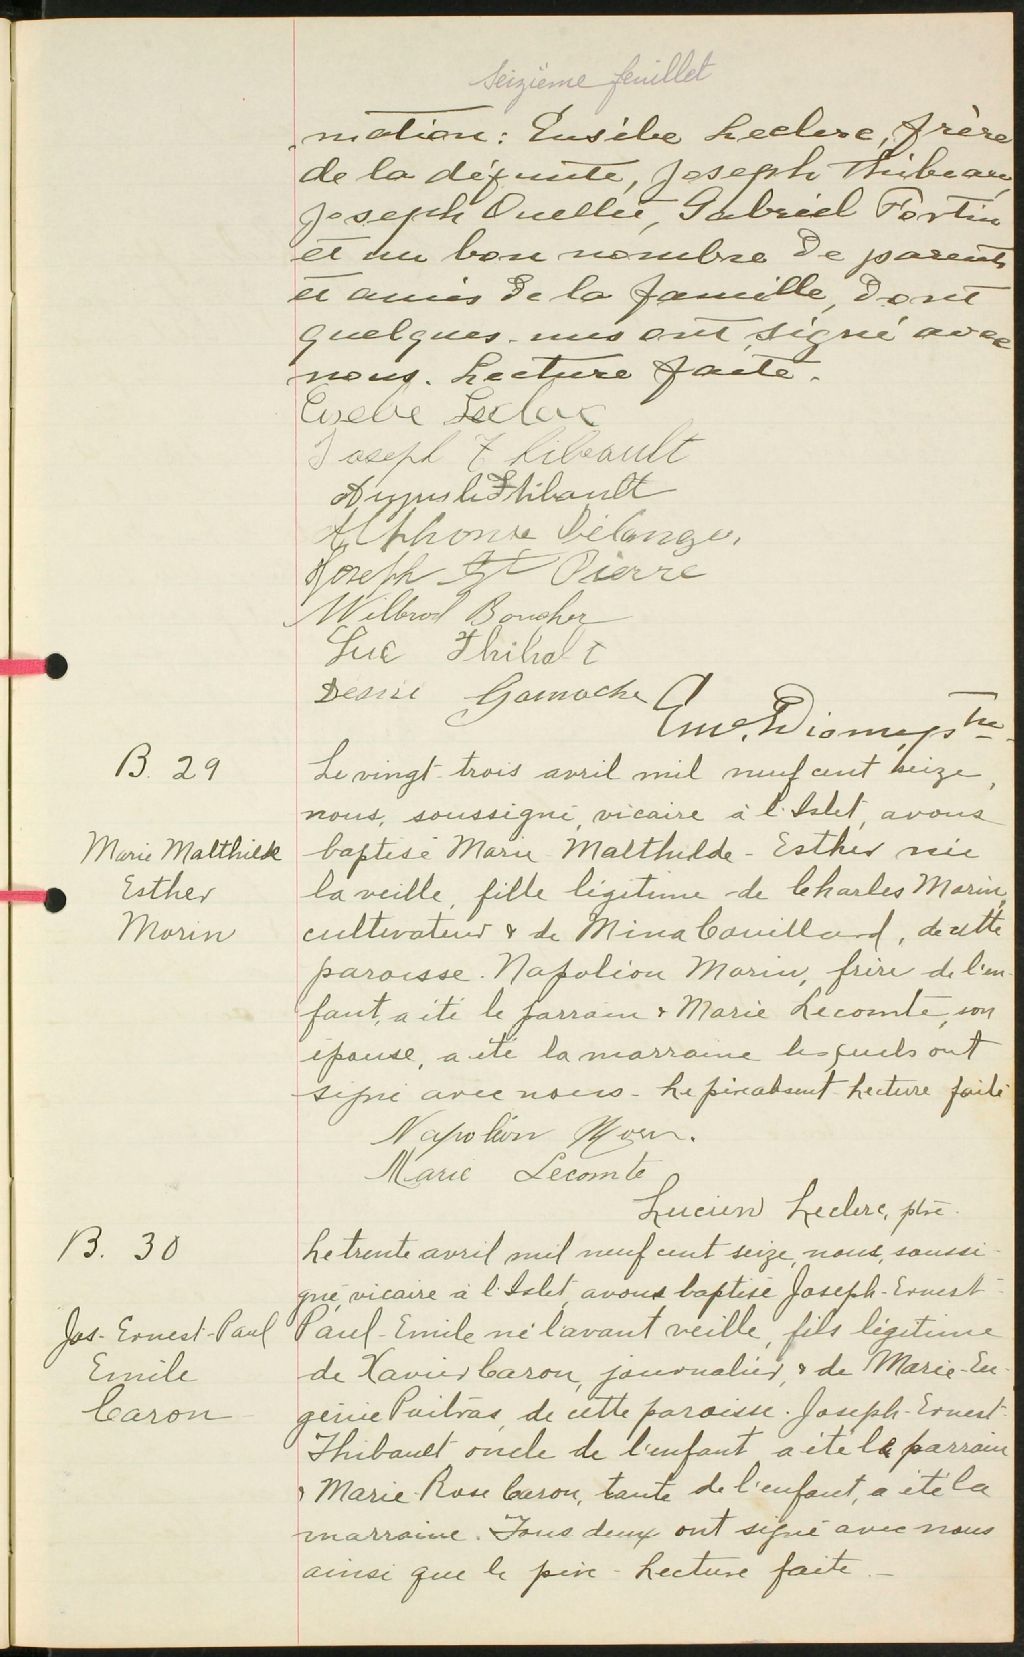 Seizième feuillet
mation: Eusèbe Leclerc, frère
de la défunte, Joseph Thibeau,
Joseph Ouellet, Gabriel Fortin
et un bon nombre de parents
et amis de la famille, dont
quelques-uns ont signé avec
nous. Lecture faite.
Eusebe Leclerc
Joseph Thibeault
Auguste Thibault
Alphonse Bélanger
Joseph St Pierre
Wilbrod Boucher
Luc Thibalt
Desiré Gamache
Ptre
B. 29
Marie Malthilde
Esther
Morin
Le vingt-trois avril mil neuf cent seize,
nous, soussigné, vicaire à l'Islet, avons
baptisé Marie-Malthilde-Esther née
la veille, fille légitime de Charles Morin,
cultivateur & de Mina Couillard, de cette
paroisse. Napoléon Morin, frère de l'en-
fant, a été le parrain & Marie Lecomte, son
épouse, a été la marraine lesquels ont
signé avec nous - Le père absent - Lecture faite
Napoléon Morin.
Marie Lecomte
Lucien Leclerc, ptre.
B. 30
Jos-Ernest-Paul
Emile
Caron
Le trente avril mil neuf cent seize, nous, soussi-
gné, vicaire à l'Islet, avons baptisé Joseph-Ernest-
Paul-Emile né l'avant veille, fils légitime
de Xavier Caron, journalier, & de Marie-Eu-
génie Poitras, de cette paroisse. Joseph-Ernest-
Thibault oncle de l'enfant a été le parrain
& Marie-Rose Caron, tante de l'enfant, a été la
marraine. Tous deux ont signé avec nous
ainsi que le père - Lecture faite -